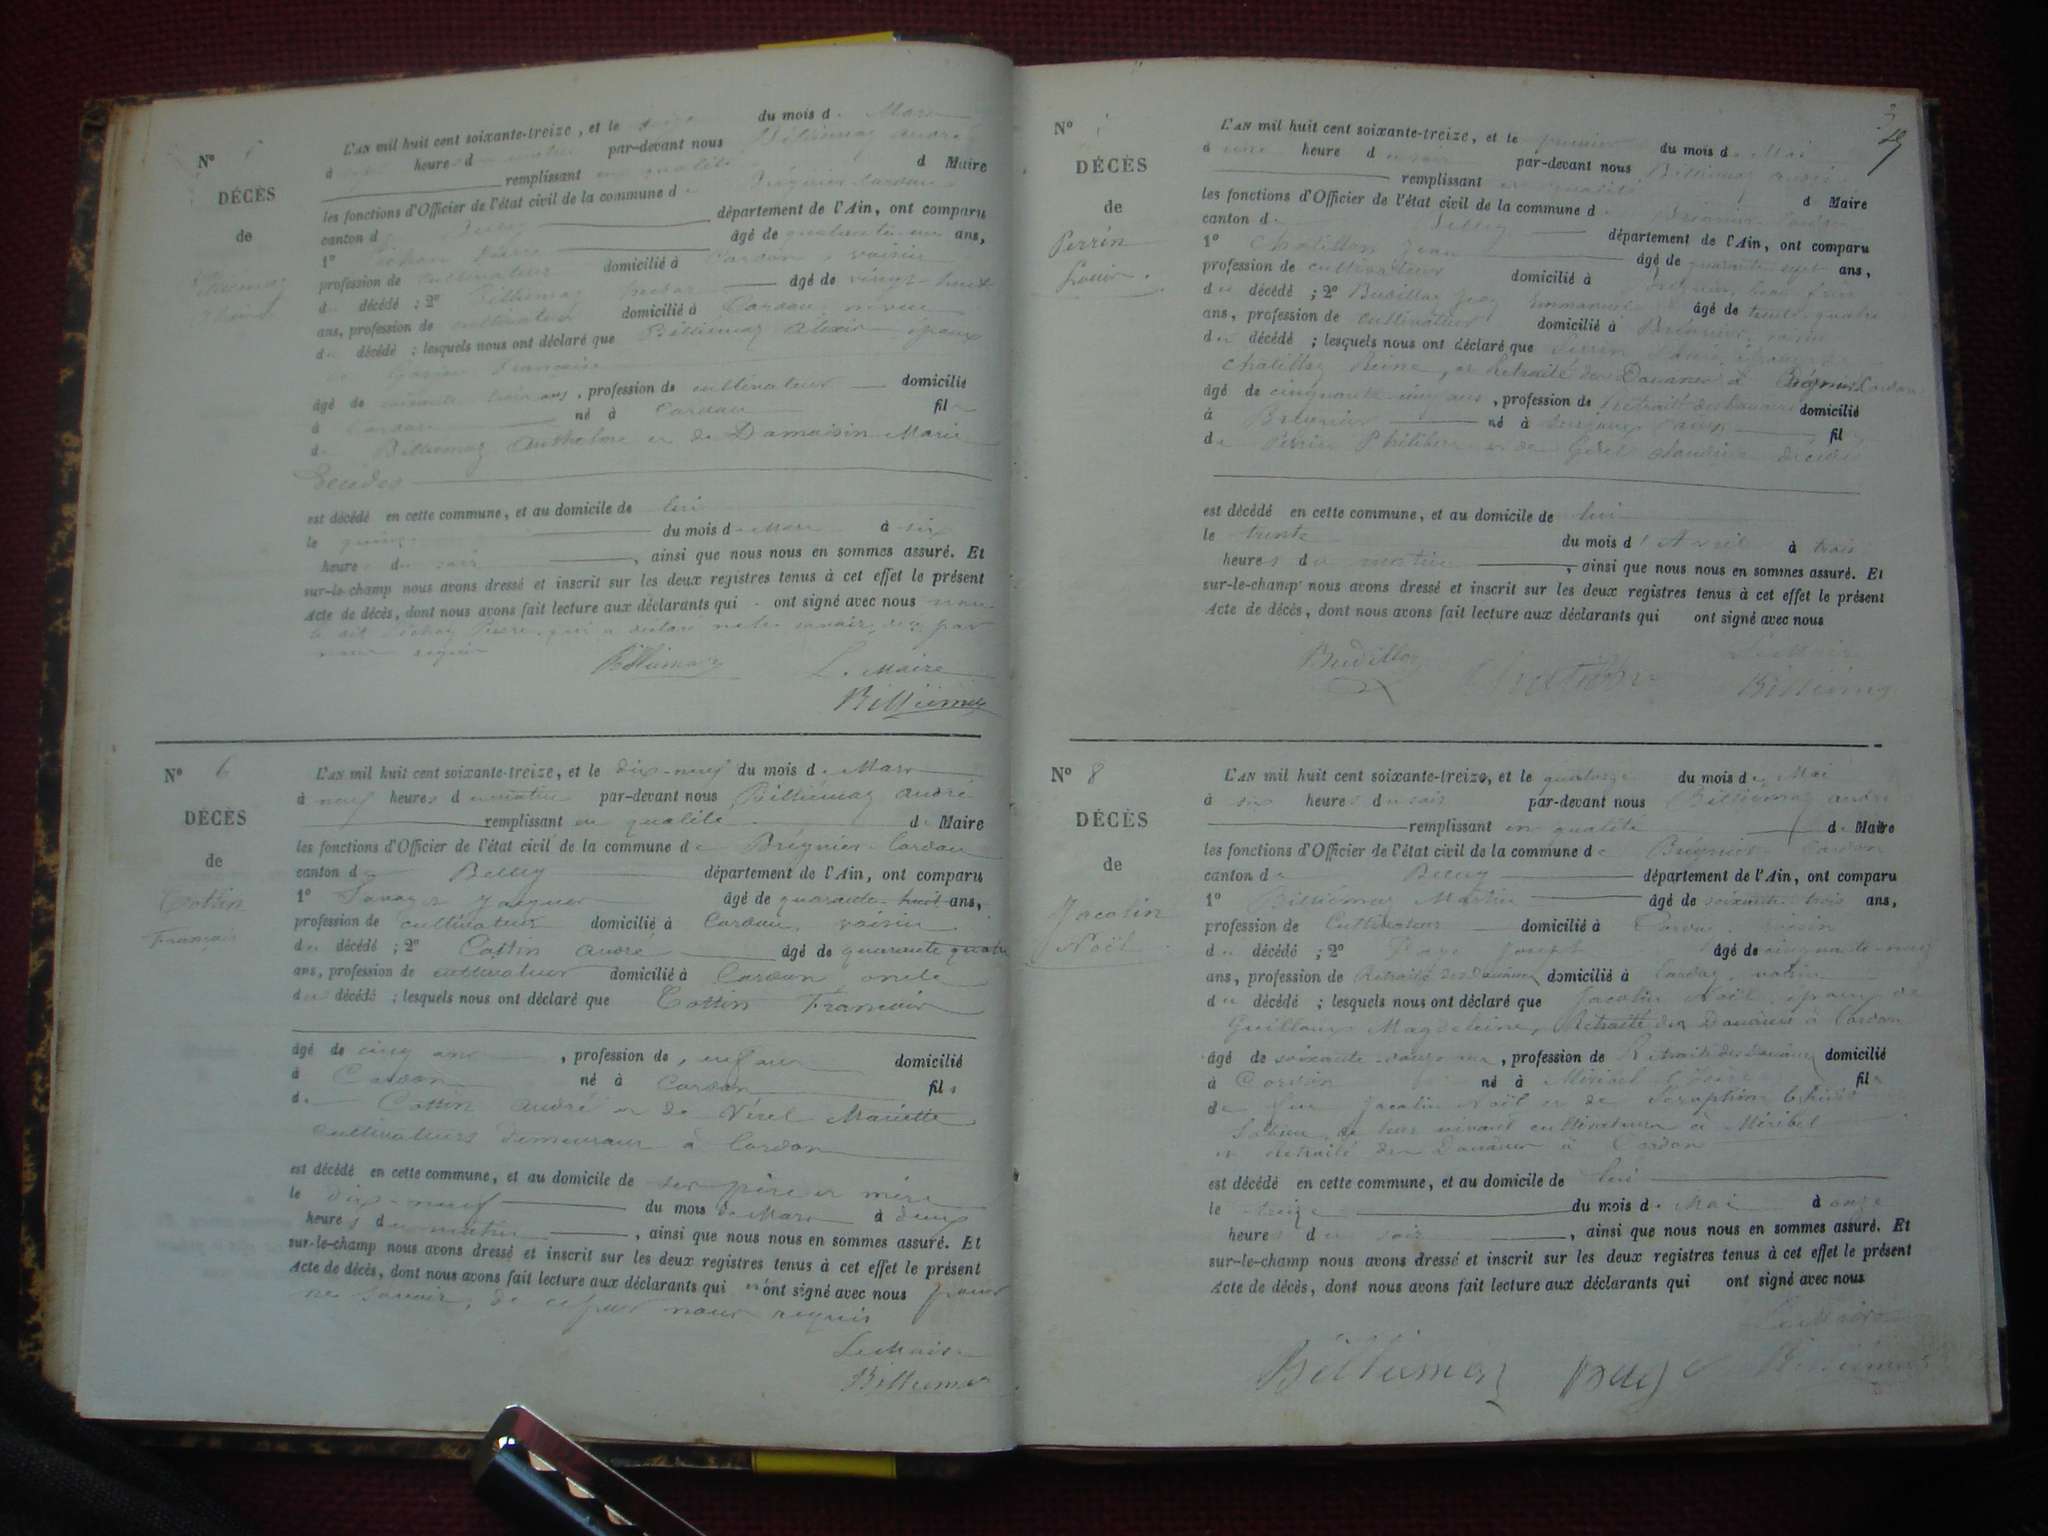 N°
DÉCÈS
de
L'AN mil huit cent soixante-treize, et le du mois d Mars
à heures d matin par-devant nous Billiémaz André
remplissant en qualité d Maire
les fonctions d'Officier de l'état civil de la commune de Brégnier-Cordon
canton d Belley département de l'Ain, ont comparu
1° Pierre âgé de quarante ans,
profession de cultivateur domicilié à Cordon, voisin
du décédé ; 2° Billiémaz âgé de vingt-huit
ans, profession de cultivateur domicilié à Cordon neveu
du décédé ; lesquels nous ont déclaré que Billiémaz Alexis époux
de Française
âgé de soixante trois ans, profession de cultivateur domicilié
à Cordon né à Cordon fils
de Billiémaz Anthelme et de Damaisin Marie
décédés
est décédé en cette commune, et au domicile de lui
le quinze du mois de Mars à six
heures du soir, ainsi que nous nous en sommes assuré. Et
sur-le-champ nous avons dressé et inscrit sur les deux registres tenus à cet effet le présent
Acte de décès, dont nous avons fait lecture aux déclarants qui ont signé avec nous non
le dit Pierre qui a déclaré ne le savoir, de par
nous requis
Billiemaz Le Maire
Billiémaz
N° 6
DÉCÈS
de
Cottin
François
L'AN mil huit cent soixante-treize, et le dix-neuf du mois de Mars
à neuf heures du matin par-devant nous Billiémaz André
remplissant en qualité de Maire
les fonctions d'Officier de l'état civil de la commune de Brégnier-Cordon
canton de Belley département de l'Ain, ont comparu
1° Jacques âgé de quarante-huit ans,
profession de cultivateur domicilié à Cordon, voisin
du décédé ; 2° Cottin André âgé de quarante quatre
ans, profession de cultivateur domicilié à Cordon oncle
du décédé ; lesquels nous ont déclaré que Cottin François
âgé de cinq ans, profession de domicilié
à Cordon né à Cordon fils
de Cottin André et de Vérel Mariette
cultivateurs demeurant à Cordon
est décédé en cette commune, et au domicile de ses père et mère
le dix-neuf du mois de Mars à deux
heures du matin, ainsi que nous nous en sommes assuré. Et
sur-le-champ nous avons dressé et inscrit sur les deux registres tenus à cet effet le présent
Acte de décès, dont nous avons fait lecture aux déclarants qui n'ont signé avec nous pour
ne savoir, de ce par nous requis
Le Maire
Billiemaz
N°
DÉCÈS
de
Perrin
Louis
L'AN mil huit cent soixante-treize, et le premier du mois de Mai
à une heure du soir par-devant nous Billiémaz André
remplissant en qualité d Maire
les fonctions d'Officier de l'état civil de la commune de Brégnier Cordon
canton d Belley département de l'Ain, ont comparu
1° Chatillon Jean âgé de quarante sept ans,
profession de cultivateur domicilié à Brégnier, beau frère
du décédé ; 2° Budillon Jean Emmanuel âgé de trente quatre
ans, profession de cultivateur domicilié à Brégnier, voisin
du décédé ; lesquels nous ont déclaré que Perrin Louis, époux de
Chatillon Reine, et Retraité des Douanes à Brégnier Cordon
âgé de cinquante-cinq ans, profession de retraité des Douanes domicilié
à Brégnier né à fils
de Perrin Philibert et de Claudine décédés
est décédé en cette commune, et au domicile de lui
le trente du mois d'Avril à trois
heures du matin, ainsi que nous nous en sommes assuré. Et
sur-le-champ nous avons dressé et inscrit sur les deux registres tenus à cet effet le présent
Acte de décès, dont nous avons fait lecture aux déclarants qui ont signé avec nous
Budillon Chatillon Le Maire
Billiemaz
N° 8
DÉCÈS
de
Jacolin
Noël
L'AN mil huit cent soixante-treize, et le quatorze du mois de Mai
à six heures du soir par-devant nous Billiémaz André
remplissant en qualité de Maire
les fonctions d'Officier de l'état civil de la commune de Brégnier Cordon
canton de Belley département de l'Ain, ont comparu
1° Billiémaz Martin âgé de soixante-trois ans,
profession de Cultivateur domicilié à Cordon voisin
du décédé ; 2° Joseph âgé de cinquante-neuf
ans, profession de Retraité des Douanes domicilié à Cordon voisin
du décédé ; lesquels nous ont déclaré que Jacolin Noël époux de
Magdeleine, Retraité des Douanes à Cordon
âgé de soixante-douze ans, profession de Retraité des Douanes domicilié
à Cordon né à Miribel Isère fils
de feu Jacolin Noël et de Séraphine
de leur vivant cultivateurs à Miribel
et Retraité des Douanes à Cordon
est décédé en cette commune, et au domicile de lui
le treize du mois de Mai à onze
heures du soir, ainsi que nous nous en sommes assuré. Et
sur-le-champ nous avons dressé et inscrit sur les deux registres tenus à cet effet le présent
Acte de décès, dont nous avons fait lecture aux déclarants qui ont signé avec nous
Le Maire
Billiemaz Billiemaz